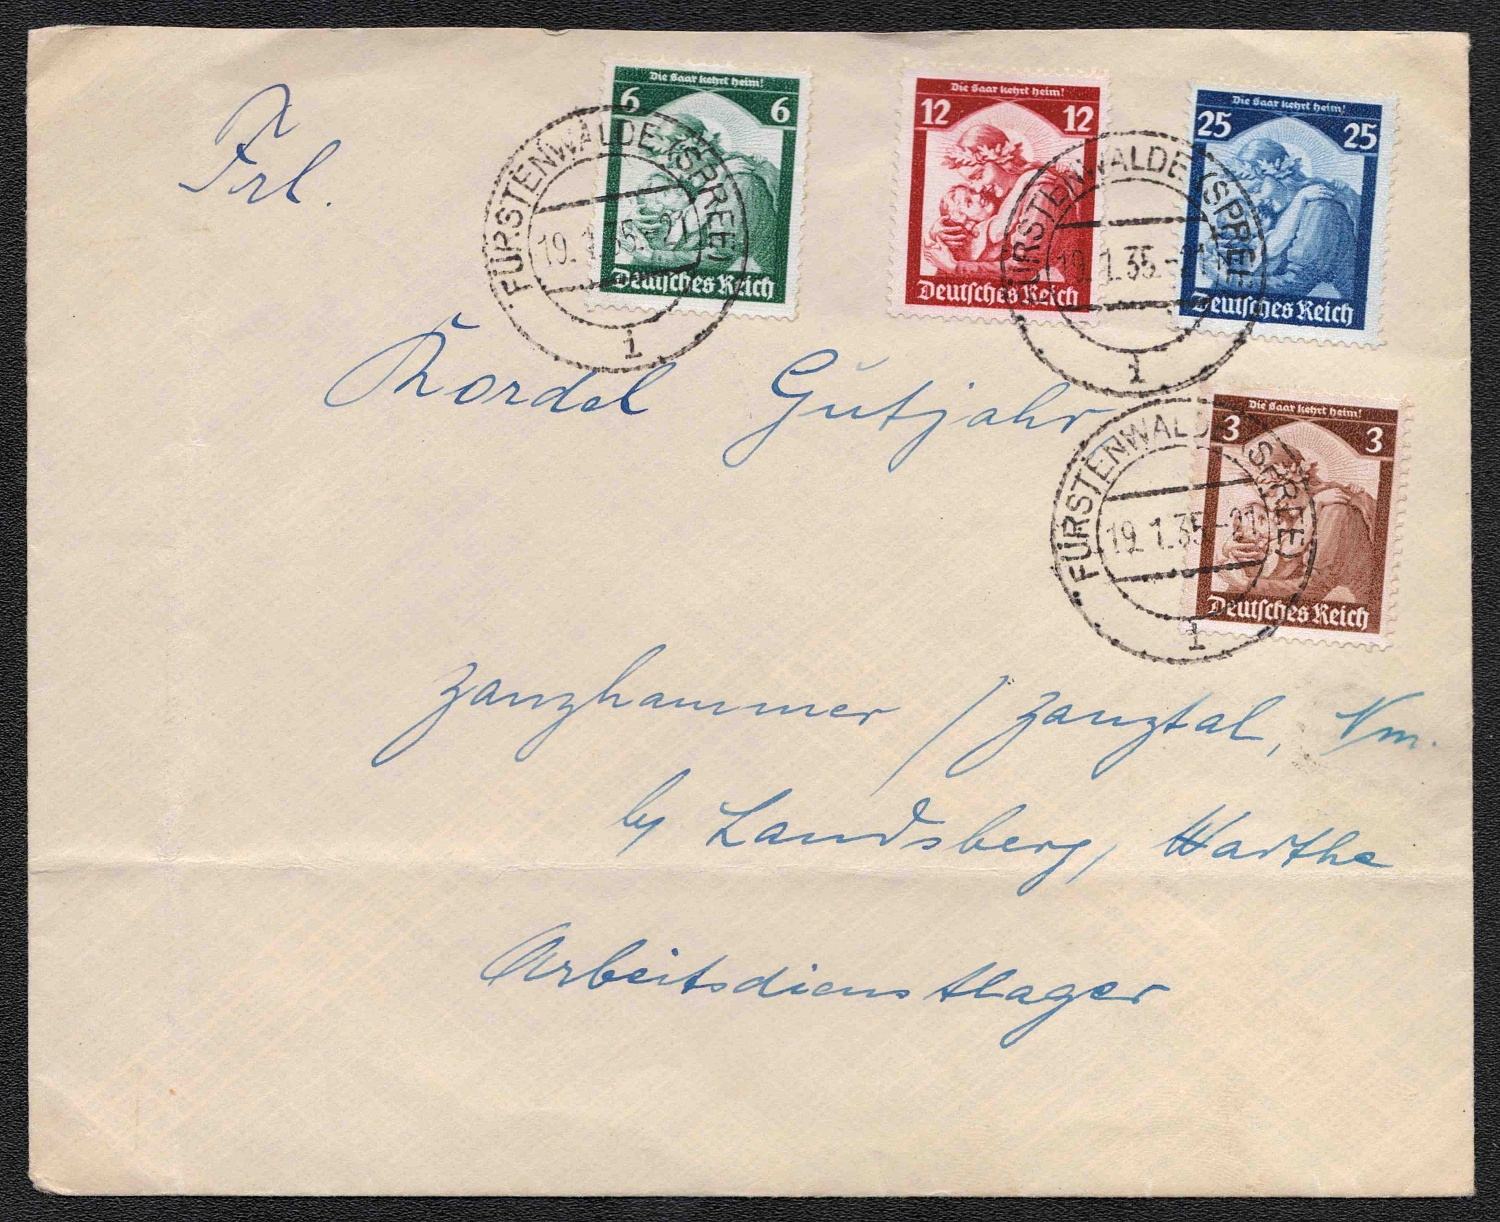 Die Saar kehrt heim!
6 6
Deutsches Reich
Die Saar kehrt heim!
12 12
Deutsches Reich
Die Saar kehrt heim!
25 25
Deutsches Reich
Die Saar kehrt heim!
3 3
Deutsches Reich
FÜRSTENWALDE (SPREE)
19.1.35.-21
i
FÜRSTENWALDE (SPREE)
19.1.35.-21
i
FÜRSTENWALDE (SPREE)
19.1.35-21
i
Frl.
Kordel Gutjahr
Zanzhammer / Zanztal, Nm.
by Landsberg, Warthe
Arbeitsdienstlager